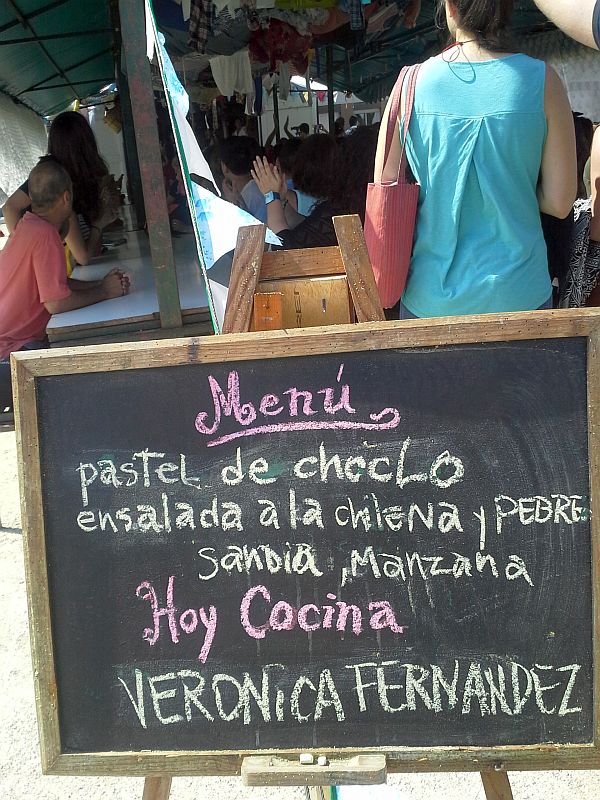 Menú
pastel de choclo
ensalada a la chilena y PEBRE
sandia, Manzana
Hoy Cocina
VERONICA FERNANDEZ